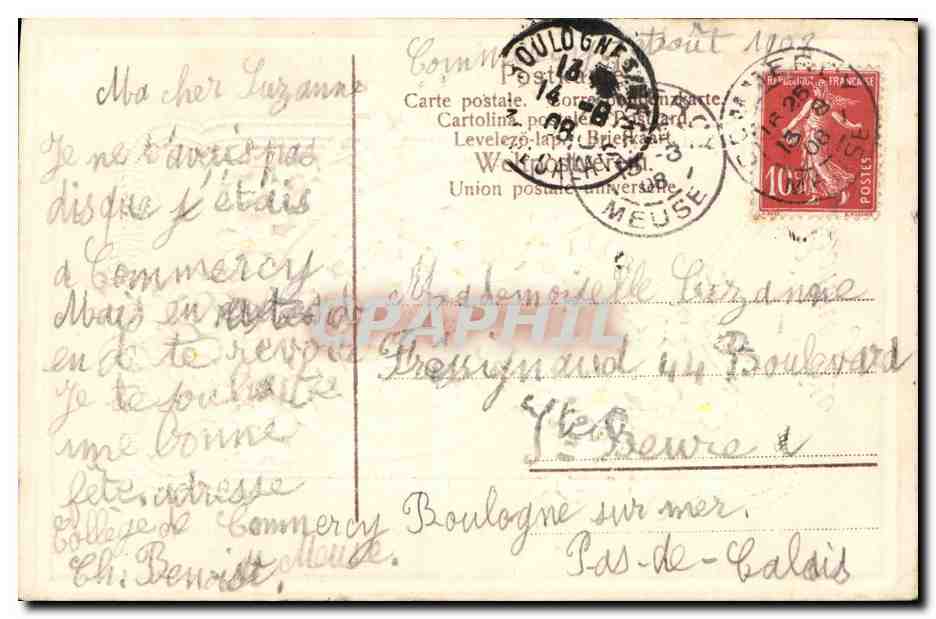 Commercy août 1908
Ma cher Suzanne
Je ne t'avais pas
dis que j'étais
a Commercy
Mais en
en de te revoir
Je te souhaite
une bonne
fête. adresse
Collège de Commercy
Meuse.
Ch. Benoist.
Carte postale. Correspondenzkarte.
Cartolina postale. Postcard.
Levelezö-lap. Briefkaart.
Union postale universelle.
BOULOGNE S/MER
13
14 -8
08
PAS-DE-CALAIS
MEUSE
COMMERCY
13 -8
08
MEUSE
REPUBLIQUE FRANÇAISE
10
POSTES
CPAPHIL
Mademoiselle Suzanne
Fressignaud 44 Boulevard
Ste Beuve
Boulogne sur mer.
Pas-de-Calais